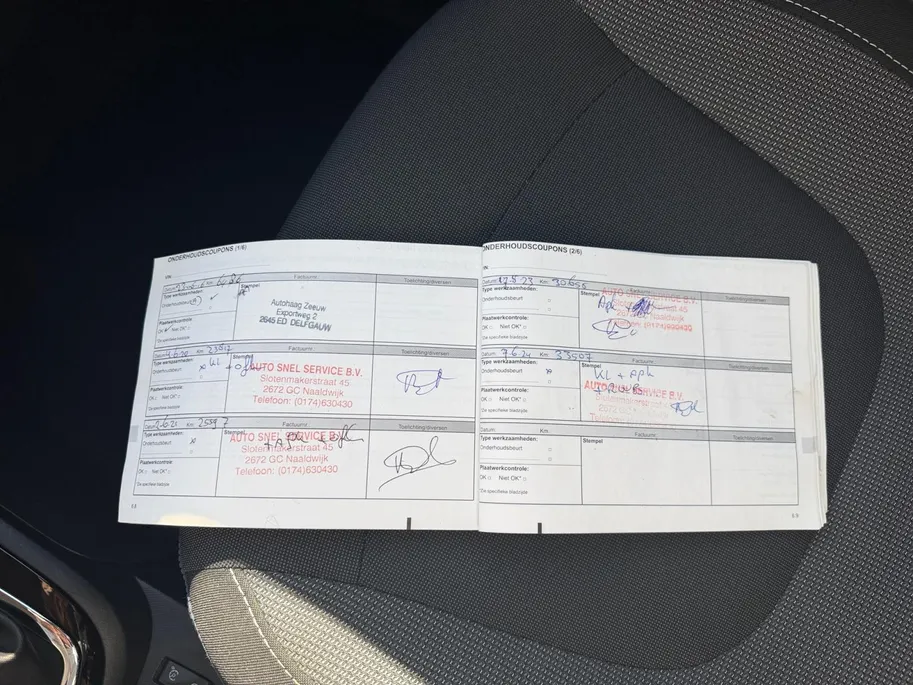 ONDERHOUDSCOUPONS (1/6)
VIN:
Datum: Km: Factuurnr.: Toelichting/diversen
Type werkzaamheden: Stempel
Onderhoudsbeurt
Autohaag Zeeuw
Exportweg 2
2645 ED DELFGAUW
Plaatwerkcontrole:
OK Niet OK*
*Zie specifieke bladzijde
Datum: Km: 23512 Factuurnr.: Toelichting/diversen
Type werkzaamheden: Stempel
Onderhoudsbeurt x KL +
AUTO SNEL SERVICE B.V.
Slotenmakerstraat 45
2672 GC Naaldwijk
Telefoon: (0174)630430
Plaatwerkcontrole:
OK Niet OK*
*Zie specifieke bladzijde
Datum: Km: 25597 Factuurnr.: Toelichting/diversen
Type werkzaamheden: Stempel
Onderhoudsbeurt x
AUTO SNEL SERVICE B.V.
Slotenmakerstraat 45
2672 GC Naaldwijk
Telefoon: (0174)630430
Plaatwerkcontrole:
OK Niet OK*
*Zie specifieke bladzijde
ONDERHOUDSCOUPONS (2/6)
VIN:
Datum: 12.5.23 Km: 30655 Factuurnr.: Toelichting/diversen
Type werkzaamheden: Stempel
Onderhoudsbeurt Apk +
AUTO SERVICE B.V.
Telefoon: (0174)630430
Plaatwerkcontrole:
OK Niet OK*
*Zie specifieke bladzijde
Datum: 7.6.24 Km: 33507 Factuurnr.: Toelichting/diversen
Type werkzaamheden: Stempel
Onderhoudsbeurt x KL + apk
AUTO SNEL SERVICE B.V.
Plaatwerkcontrole:
OK Niet OK*
*Zie specifieke bladzijde
Datum: Km: Factuurnr.: Toelichting/diversen
Type werkzaamheden: Stempel
Onderhoudsbeurt
Plaatwerkcontrole:
OK Niet OK*
*Zie specifieke bladzijde